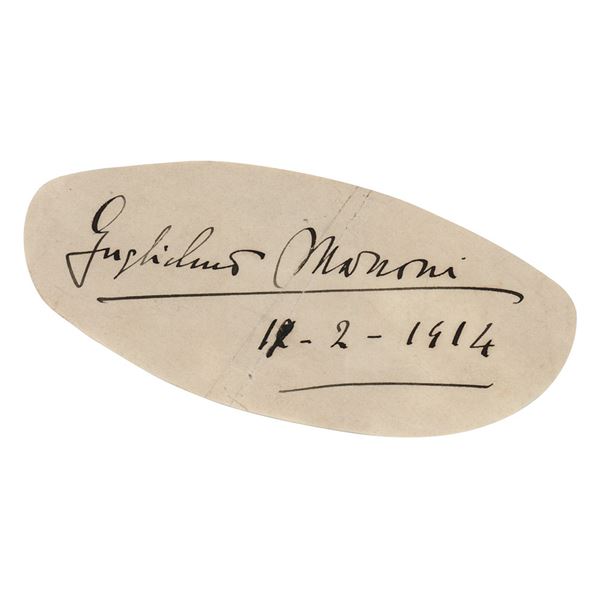 Guglielmo Marconi
17-2-1914